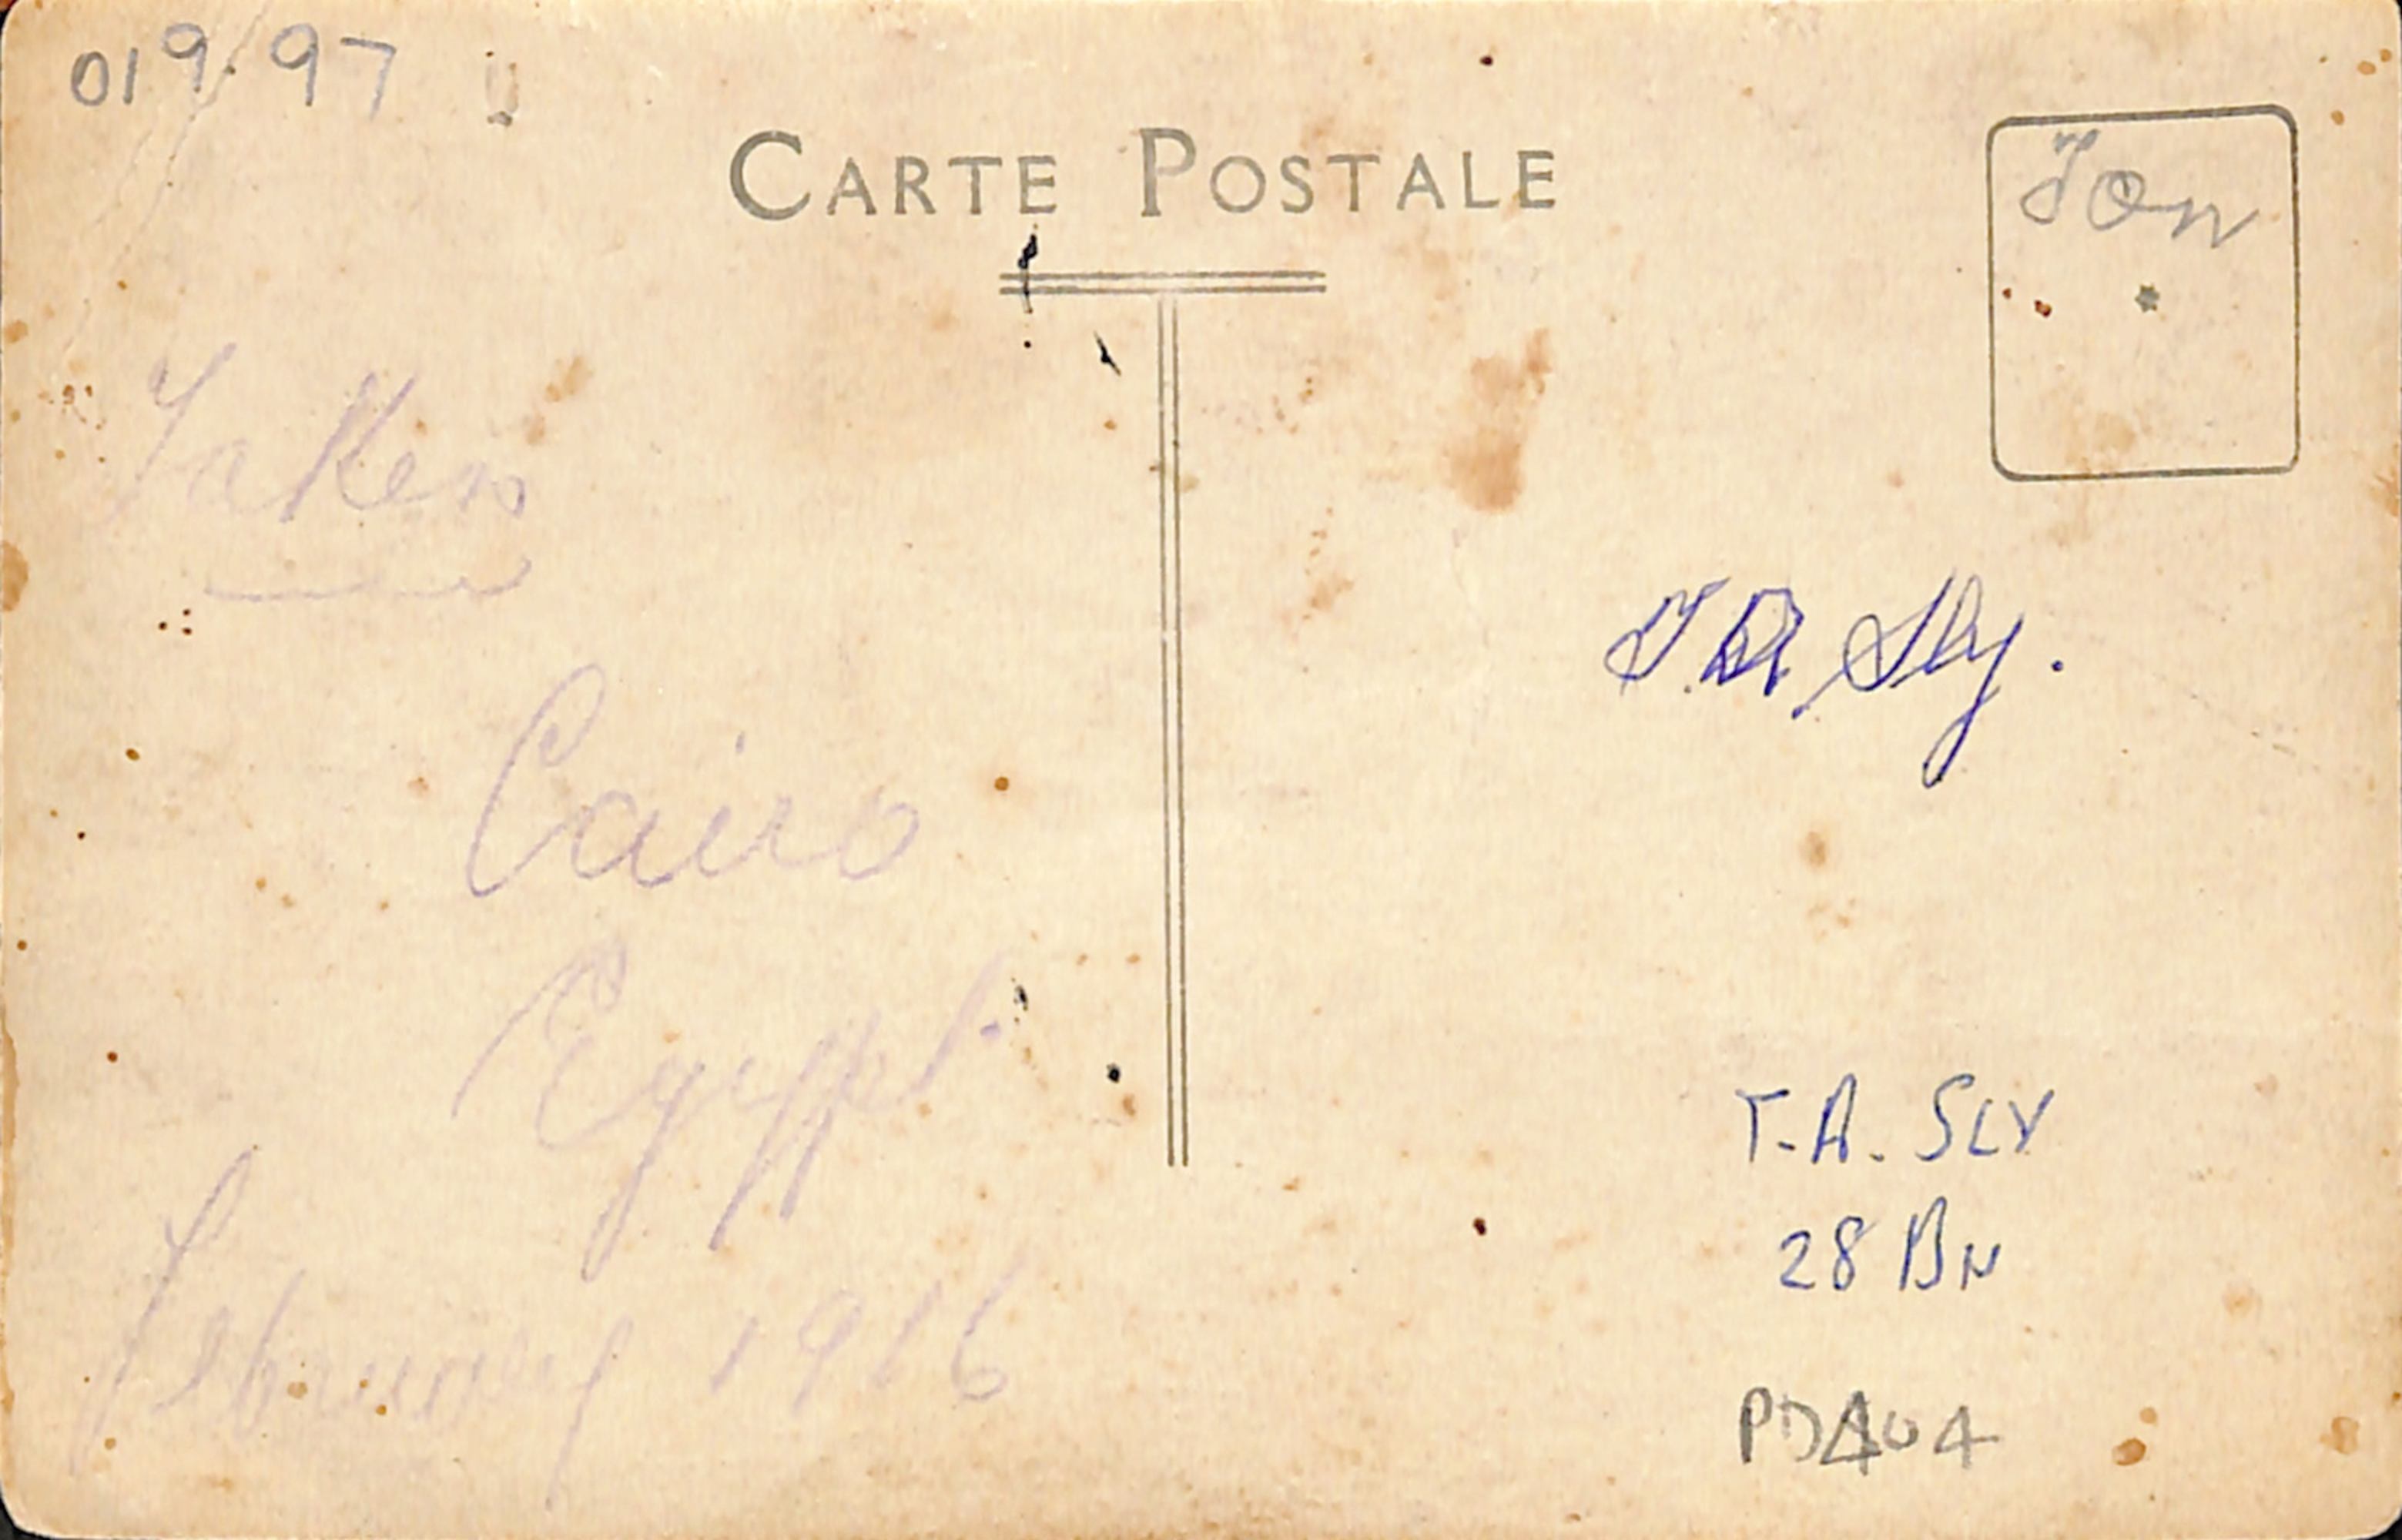 019.97
CARTE POSTALE
Taken
Cairo
Egypt.
February 1916
Sly.
T.A. SLY
28 BN
PD404